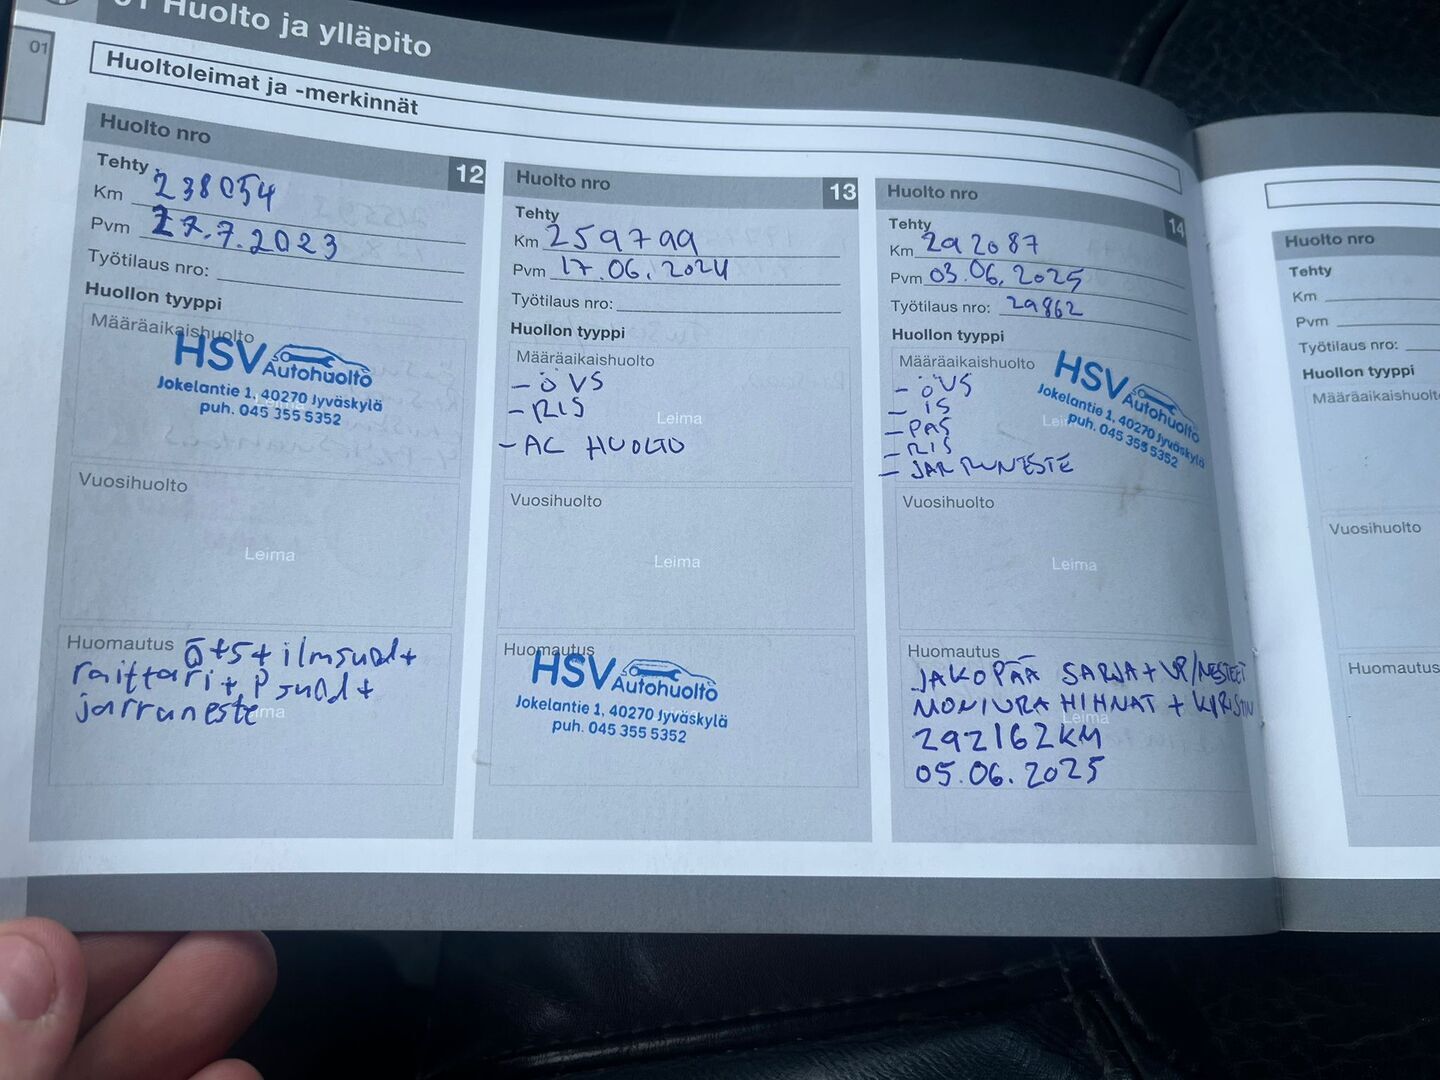 01 Huolto ja ylläpito
01
Huoltoleimat ja -merkinnät
Huolto nro
12
Tehty
Km 238054
Pvm 27.7.2023
Työtilaus nro:
Huollon tyyppi
Määräaikaishuolto
HSV Autohuolto
Jokelantie 1, 40270 Jyväskylä
puh. 045 355 5352
Leima
Vuosihuolto
Leima
Huomautus Ö+S+ilmsuod+
raittari+Psuod+
jarruneste
Leima
Huolto nro
13
Tehty
Km 259799
Pvm 17.06.2024
Työtilaus nro:
Huollon tyyppi
Määräaikaishuolto
- ÖVS
- RIS
Leima
- AC HUOLTO
Vuosihuolto
Leima
Huomautus
HSV Autohuolto
Jokelantie 1, 40270 Jyväskylä
puh. 045 355 5352
Huolto nro
14
Tehty
Km 292087
Pvm 03.06.2025
Työtilaus nro: 29862
Huollon tyyppi
Määräaikaishuolto
- ÖVS
- IS
- PAS
- RIS
- JARRUNESTE
HSV Autohuolto
Jokelantie 1, 40270 Jyväskylä
puh. 045 355 5352
Vuosihuolto
Leima
Huomautus
JAKOPÄÄ SARJA + VP/NESTEET
MONIURA HIHNAT + KIRISTIN
Leima
292162KM
05.06.2025
Huolto nro
Tehty
Km
Pvm
Työtilaus nro:
Huollon tyyppi
Määräaikaishuolto
Vuosihuolto
Huomautus